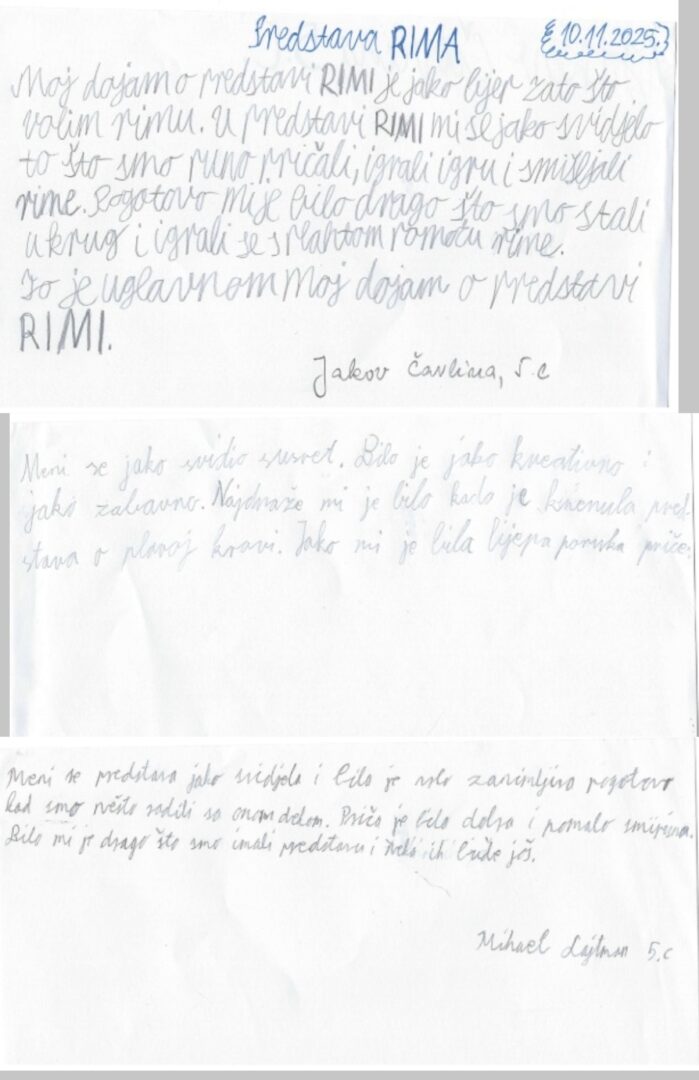 Predstava RIMA
10.11.2025.
Moj dojam o predstavi RIMI je jako lijep zato što
volim rimu. U predstavi RIMI mi se jako svidjelo
to što smo puno pričali, igrali igru i smišljali
rime. Pogotovo mi je bilo drago što smo stali
u krug i igrali se s plahtom pomoću rime.
To je uglavnom Moj dojam o predstavi
RIMI.
Jakov Čavlina, 5.c
Meni se jako svidio susret. Bilo je jako kreativno i
jako zabavno. Najdraže mi je bilo kada je krenula pred-
stava o plavoj kravi. Jako mi je bila lijepa poruka priče.
Meni se predstava jako svidjela i bilo je vrlo zanimljivo pogotovo
kad smo nešto radili sa onom dekom. Priča je bila dobra i pomalo smiješna.
Bilo mi je drago što smo imali predstavu i neka ih bude još.
Mihael Lajtman 5.c